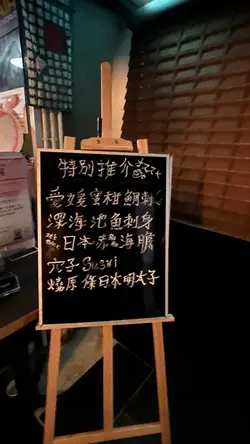 特別推介
愛媛蜜柑鯛刺
深海池魚刺身
日本赤海膽
穴子Sushi
燒原條日本明太子